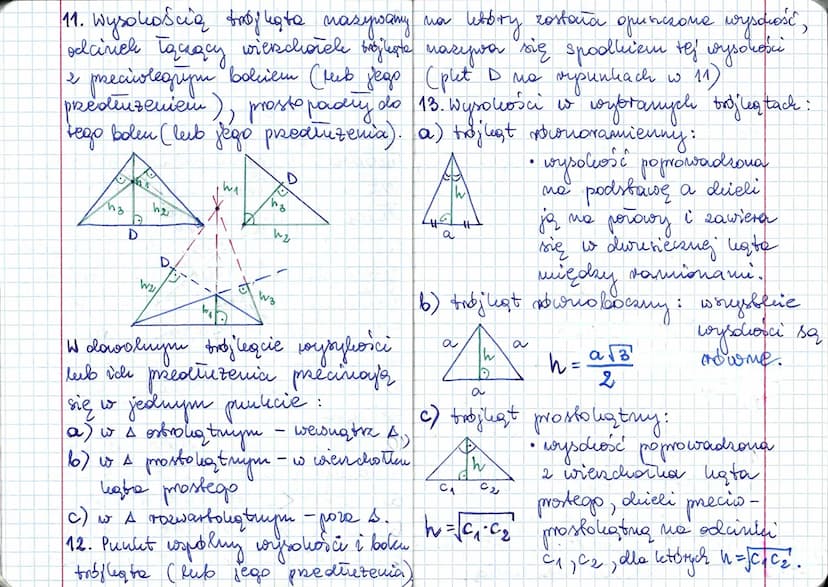 11. Wysokością trójkąta nazywamy
odcinek łączący wierzchołek trójkąta
z przeciwległym bokiem (lub jego
przedłużeniem), prostopadły do
tego boku (lub jego przedłużenia).
h1
h3
h2
D
D
h3
h2
h1
D
h2
h3
h1
W dowolnym trójkącie wysokości
lub ich przedłużenia przecinają
się w jednym punkcie:
a) w Δ ostrokątnym – wewnątrz Δ,
b) w Δ prostokątnym – w wierzchołku
kąta prostego
c) w Δ rozwartokątnym – poza Δ.
12. Punkt wspólny wysokości i boku
trójkąta (lub jego przedłużenia)
na który została opuszczona wysokość,
nazywa się spodkiem tej wysokości
(pkt D na rysunkach w 11)
13. Wysokości w wybranych trójkątach:
a) trójkąt równoramienny:
h
a
• wysokość poprowadzona
na podstawę a dzieli
ją na połowy i zawiera
się w dwusiecznej kąta
między ramionami.
b) trójkąt równoboczny: wszystkie
wysokości są
równe.
a
a
h
a
h = a√3/2
c) trójkąt prostokątny:
h
c1 c2
h=√c1·c2
• wysokość poprowadzona
z wierzchołka kąta
prostego, dzieli przeciw-
prostokątną na odcinki
c1, c2, dla których h=√c1c2.